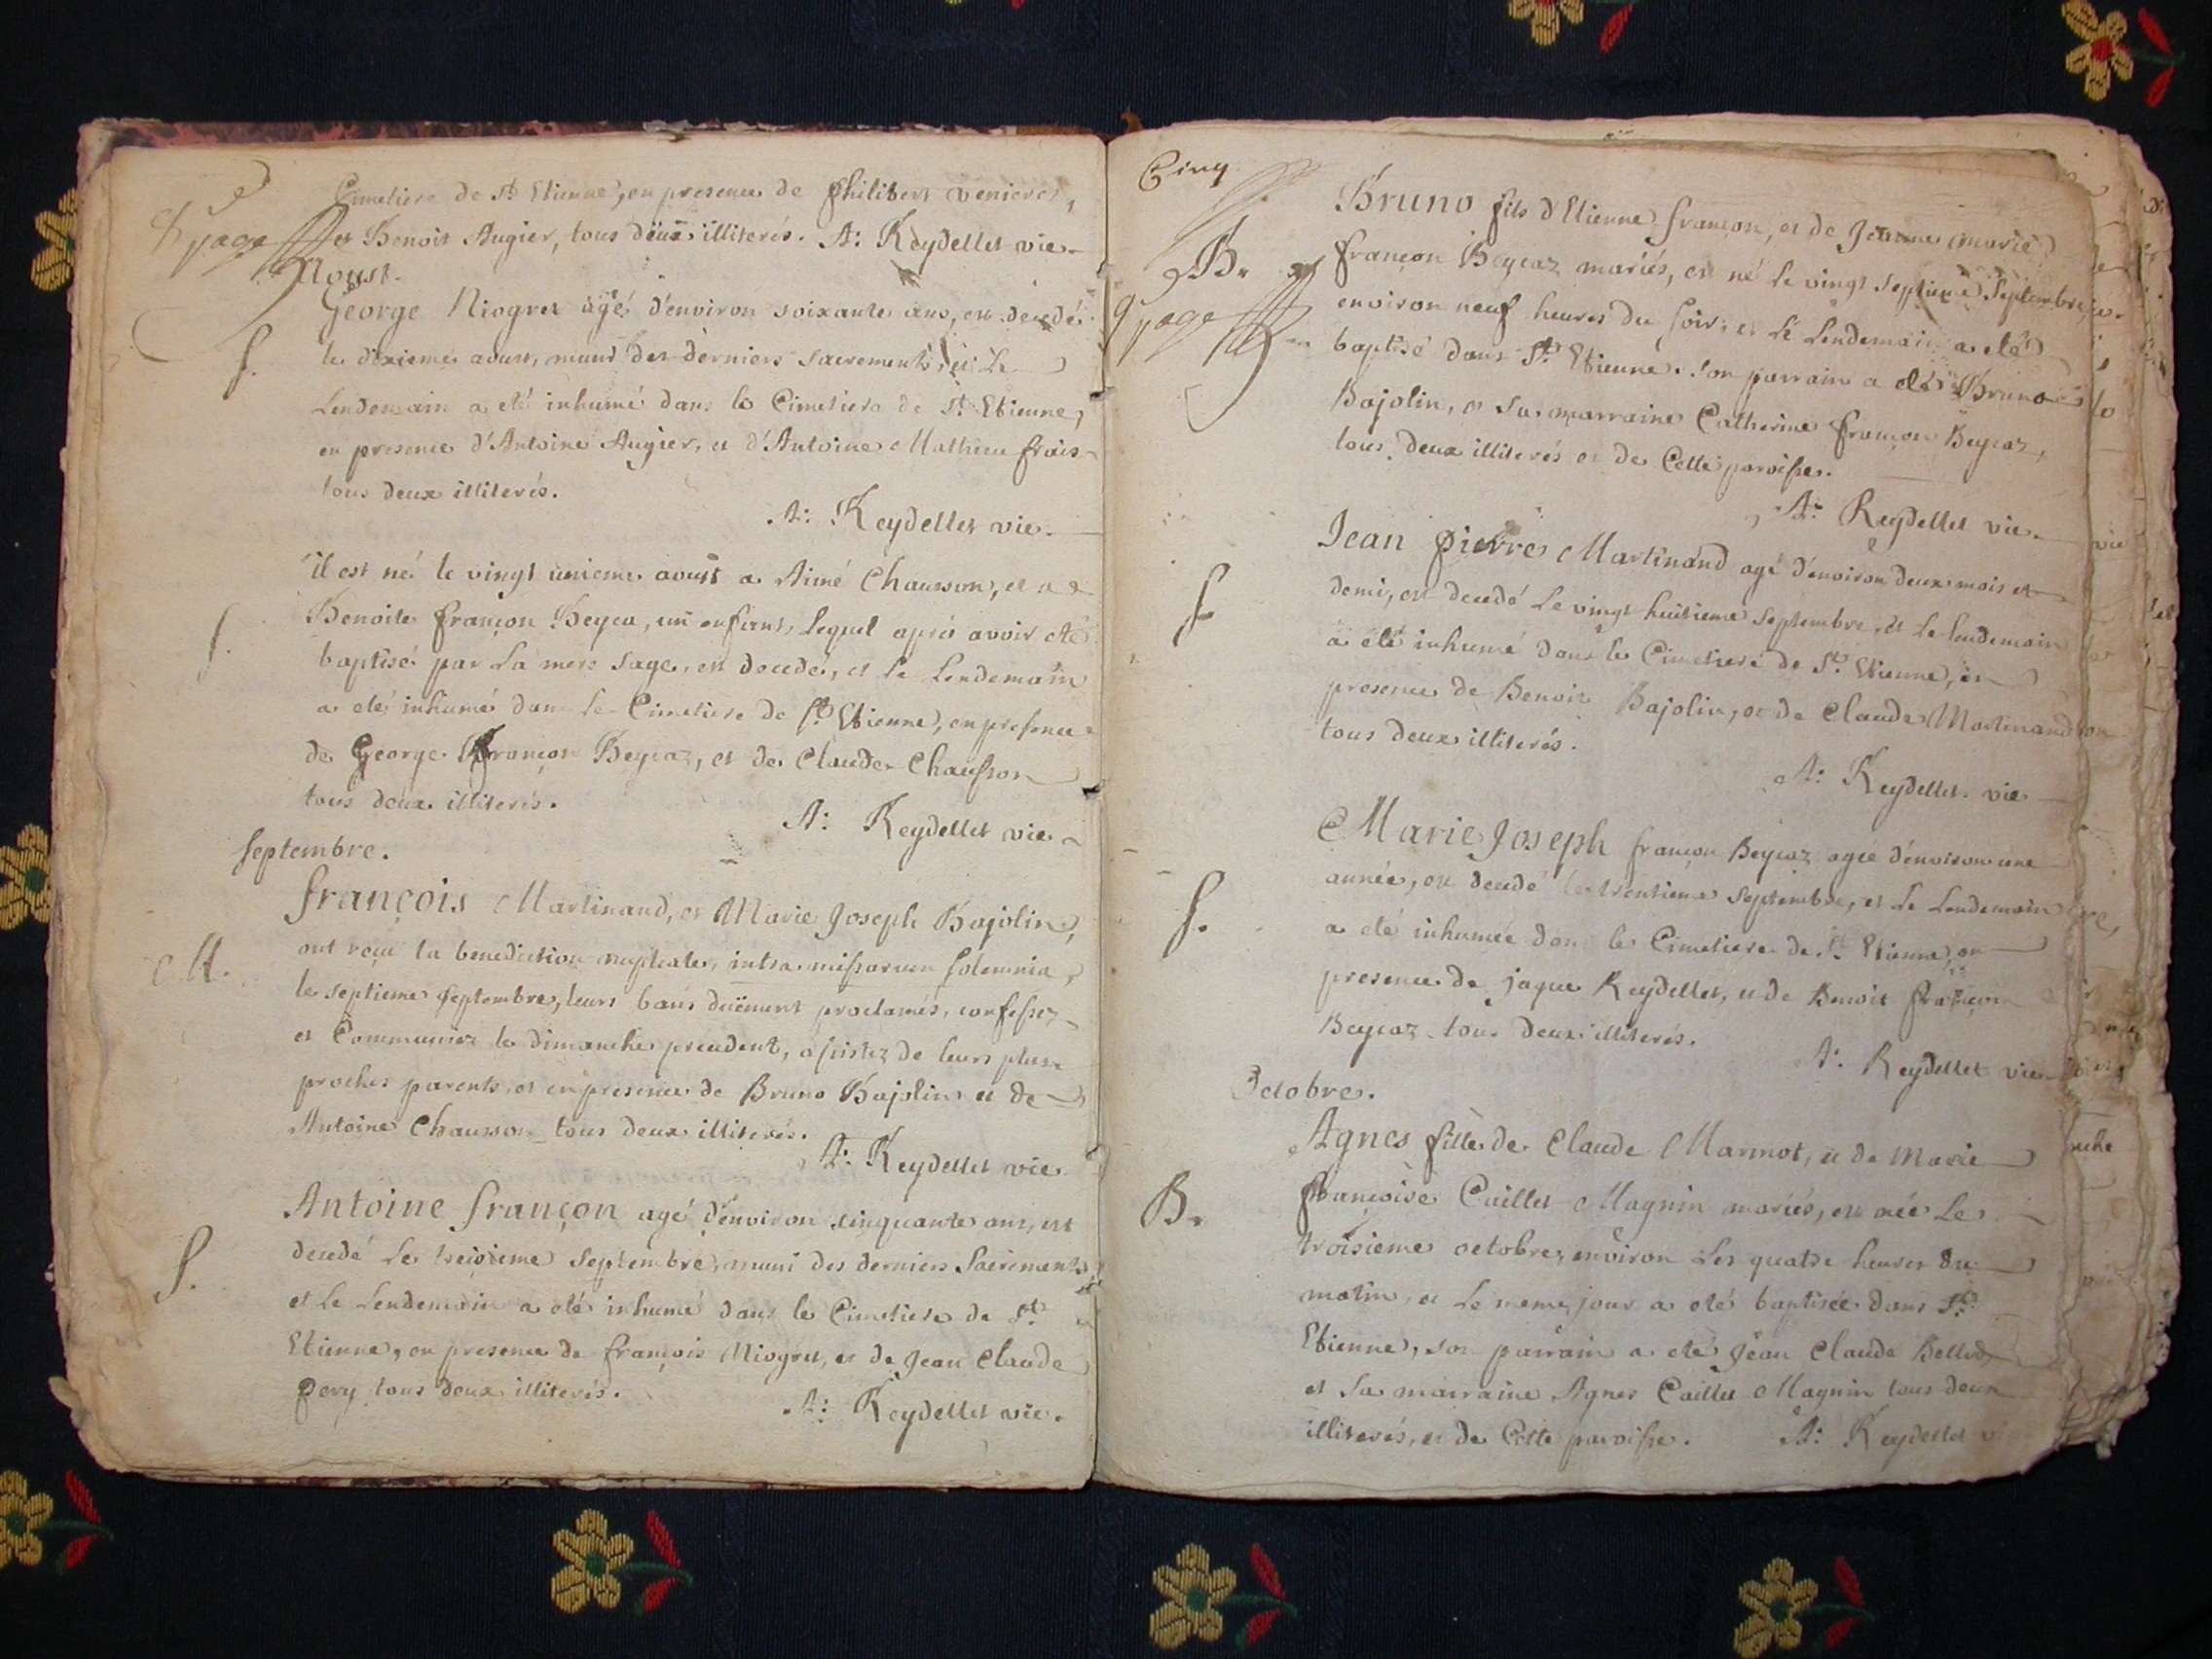 Cimetiere de St. Etienne, en presence de Philibert
8 page
et Benoit Augier, tous deux illiterés. A: Reydellet vic.
Aoust.
George Niogret agé d'environ soixante ans, est decedé
S.
le dixieme aoust, muni des derniers sacrements, et Le
Lendemain a eté inhumé dans le Cimetiere de St. Etienne,
en presence d'Antoine Augier, et d'Antoine Mathieu frais
tous deux illiterés.
A: Reydellet vic.
il est né le vingt unieme aoust a Aimé Chausson, et a
S.
Benoite françon Beyca, un enfant, lequel aprés avoir eté
baptisé par La mere sage, est decedé, et Le Lendemain
a eté inhumé dans le Cimetiere de St. Etienne, en presence
de George françon Beycaz, et de Claude Chausson
tous deux illiterés.
A: Reydellet vic.
septembre.
françois Martinand, et Marie Joseph Bajolin,
ont reçu la benediction nuptiale, intra missarum solemnia,
M.
le septieme septembre, leurs bans duëment proclamés, confessez
et Communiez le dimanche precedent, assistez de leurs plus
proches parents, et en presence de Bruno Bajolin et de
Antoine Chausson tous deux illiterés.
A: Reydellet vic.
Antoine françon agé d'environ cinquante ans, est
S.
decedé Le treizieme septembre, muni des derniers Sacrements,
et Le Lendemain a eté inhumé dans le Cimetiere de St.
Etienne, en presence de françois Niogret, et de Jean Claude
Pery tous deux illiterés.
A: Reydellet vic.
Cinq
Bruno fils d'Etienne françon, et de Jeanne marie
B.
françon Beycaz mariés, est né le vingt septieme septembre,
9 page
environ neuf heures du soir, et Le Lendemain a eté
baptisé dans St. Etienne. son parrain a eté Bruno
Bajolin, et sa marraine Catherine françon Beycaz,
tous deux illiterés et de Cette paroisse.
A: Reydellet vic.
Jean pierre Martinand agé d'environ deux mois et
S.
demi, est decedé Le vingt huitieme septembre, et Le lendemain
a eté inhumé dans le Cimetiere de St. Etienne, en
presence de Benoit Bajolin, et de Claude Martinand
tous deux illiterés.
A: Reydellet vic
Marie Joseph françon Beycaz agée d'environ une
année, est decedé le trentieme septembre, et Le Lendemain
S.
a eté inhumée dans le Cimetiere de St. Etienne, en
presence de jaque Reydellet, et de Benoit françon
Beycaz tous deux illiterés.
A: Reydellet vic
Octobre.
Agnes fille de Claude Marmot, et de Marie
B.
françoise Caillet Magnin mariés, est née Le
troisieme octobre, environ Les quatre heures du
matin, et Le meme jour a eté baptisée dans St.
Etienne, son parrain a eté Jean Claude
et Sa marraine Agnes Caillet Magnin tous deux
illiterés, et de Cette paroisse. A: Reydellet